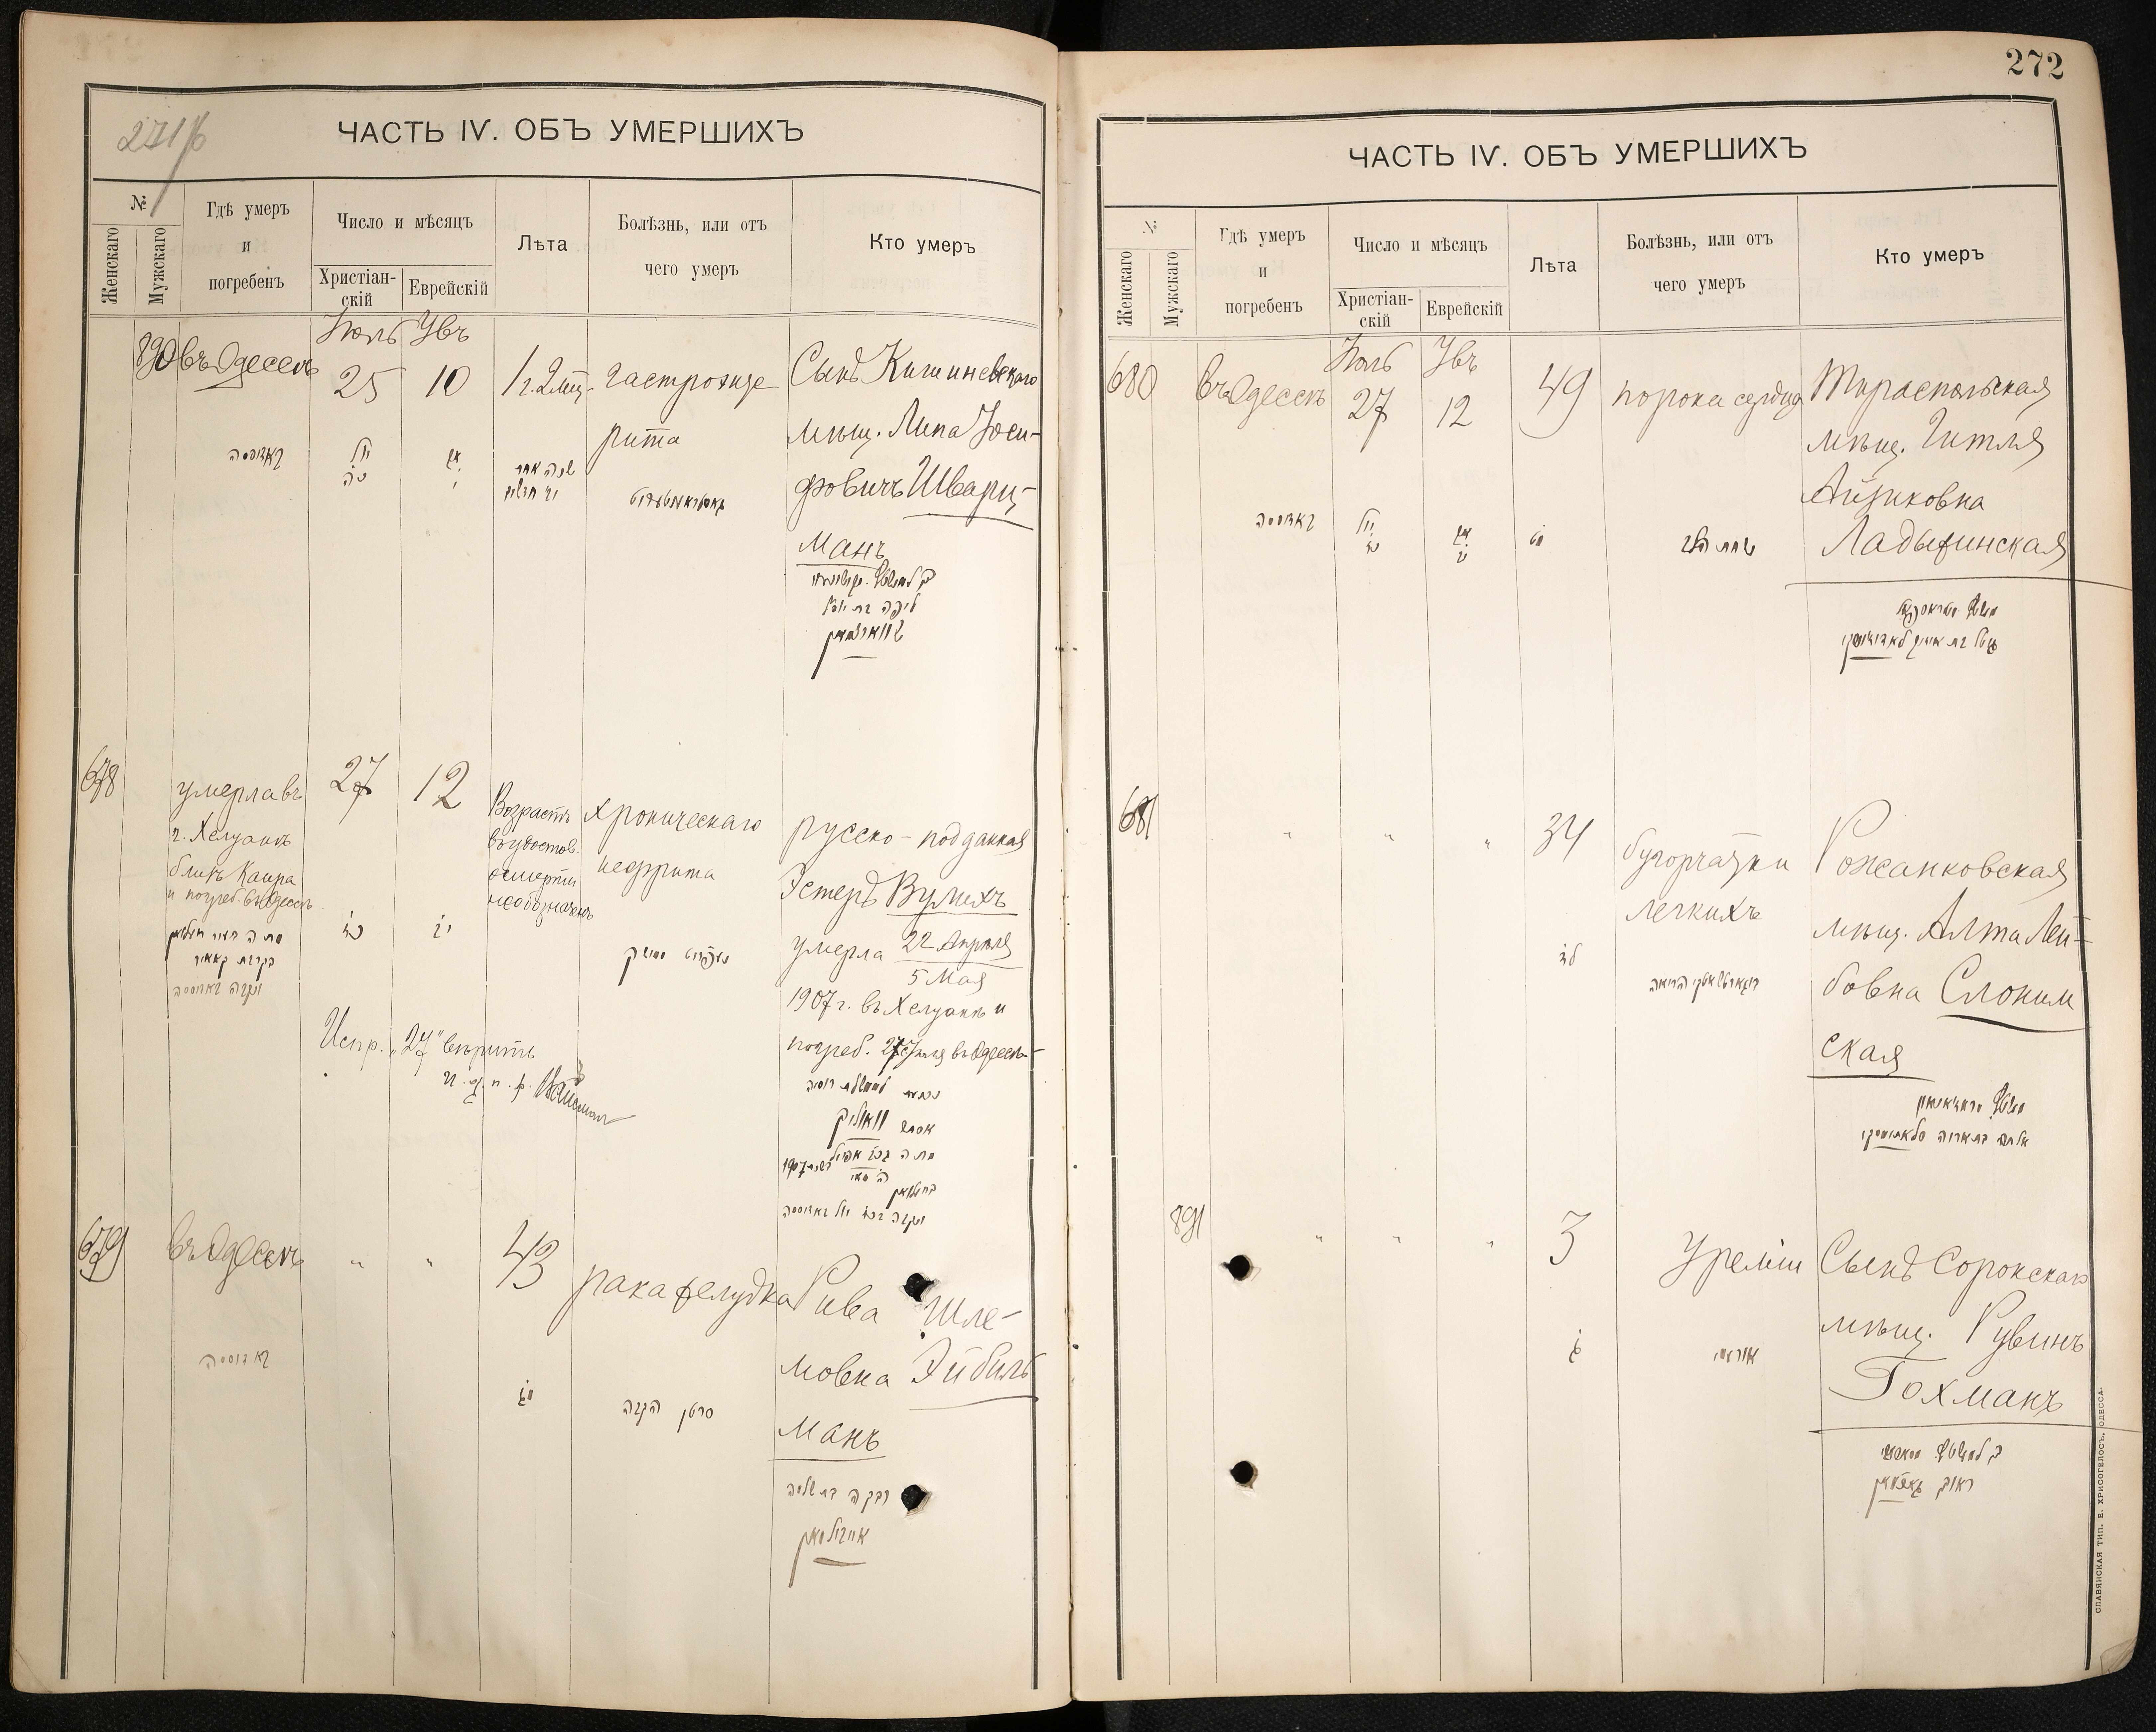 271/б
ЧАСТЬ IV. ОБЪ УМЕРШИХЪ
№
Женскаго
Мужскаго
Гдѣ умеръ
и
погребенъ
Число и мѣсяцъ
Христіан-
скій
Еврейскій
Лѣта
Болѣзнь, или отъ
чего умеръ
Кто умеръ
890
въ Одессѣ
Іюль
25
Увъ
10
1 г. 2 мѣс.
гастроэнте
рита
Сынъ Кишиневскаго
мѣщ. Липа Іоси-
фовичъ Шварц-
манъ
באדוססה
יול
כה
אב
י
שנה אחת
וב׳ חדשים
שווארצמאן
678
умерла въ
г. Хелуанѣ
близъ Каира
и погреб. въ Одессѣ
27
12
Возрастъ
въ удостов.
о смерти
не обозначенъ
хроническаго
нефрита
русско-подданная
Эстеръ Вулихъ
умерла 22 Апрѣля
5 Мая
1907 г. въ Хелуанѣ и
погреб. 27 Іюля въ Одессѣ
כז
יב
Испр. "27" вѣрить
и. д. п. р.
אסתר וואוליך
679
въ Одессѣ
"
"
43
рака желудка
Рива Шле-
мовна Эйбиль
манъ
באדוססה
מג
סרטן הקבה
רבקה בת שלמה
אייבילמאן
272
ЧАСТЬ IV. ОБЪ УМЕРШИХЪ
№
Женскаго
Мужскаго
Гдѣ умеръ
и
погребенъ
Число и мѣсяцъ
Христіан-
скій
Еврейскій
Лѣта
Болѣзнь, или отъ
чего умеръ
Кто умеръ
680
въ Одессѣ
Іюль
27
Увъ
12
49
порока сердца
Тираспольская
мѣщ. Гитля
Айзиковна
Ладыжинская
באדוססה
יול
כז
אב
יב
מט
681
"
"
"
34
бугорчатки
легкихъ
Рожанковская
мѣщ. Алта Лей-
бовна Слоним
ская
לד
891
"
"
"
3
Уреміи
Сынъ Сорокскаго
мѣщ. Рувинъ
Гохманъ
ג
ראובן גאכמאן
СЛАВЯНСКАЯ ТИП. Е. ХРИСОГЕЛОСЪ, ОДЕССА.